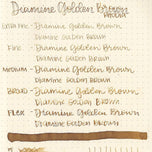 Diamine Golden Brown
Extra Fine - Diamine Golden Brown
Diamine Golden Brown
Fine - Diamine Golden Brown
Diamine Golden Brown
Medium - Diamine Golden Brown
Diamine Golden Brown
Broad - Diamine Golden Brown
Diamine Golden Brown
Flex - Diamine Golden Brown
Diamine Golden Brown